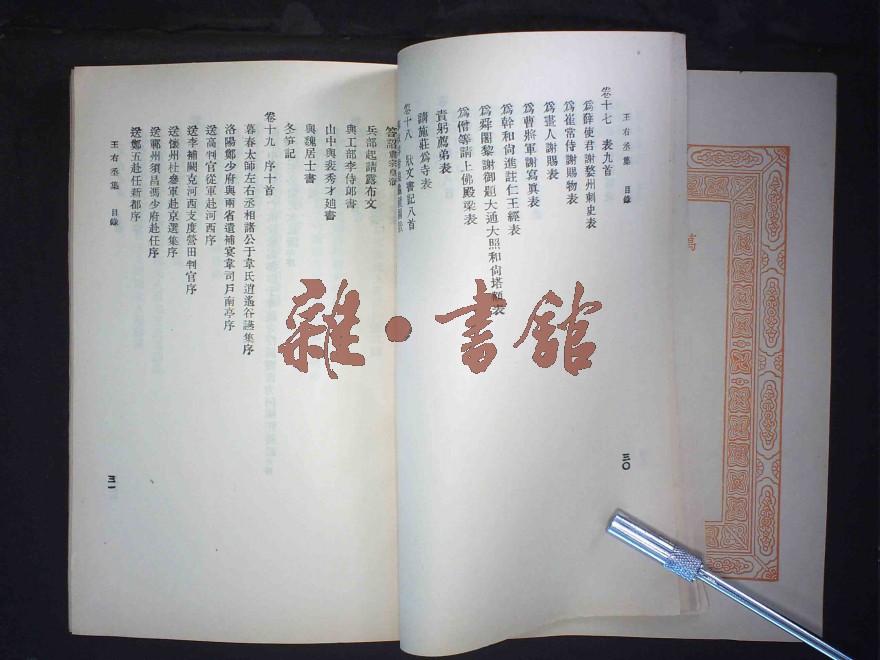 王右丞集　目錄
卷十七　表九首
爲薛使君謝婺州刺史表
爲崔常侍謝賜物表
爲畫人謝賜表
爲曹將軍謝寫真表
爲幹和尙進註仁王經表
爲舜闍黎謝御題大通大照和尙塔額表
爲僧等請上佛殿梁表
責躬薦弟表
請施莊爲寺表
卷十八　狀文書記八首
三〇
兵部起請露布文
與工部李侍郎書
山中與裴秀才迪書
與魏居士書
冬筍記
卷十九　序十首
暮春太師左右丞相諸公于韋氏逍遙谷讌集序
洛陽鄭少府與兩省遺補宴韋司戶南亭序
送高判官從軍赴河西序
送李補闕充河西支度營田判官序
送懷州杜參軍赴京選集序
送鄆州須昌馮少府赴任序
送鄭五赴任新都序
王右丞集　目錄
三一
萬
雜·書館